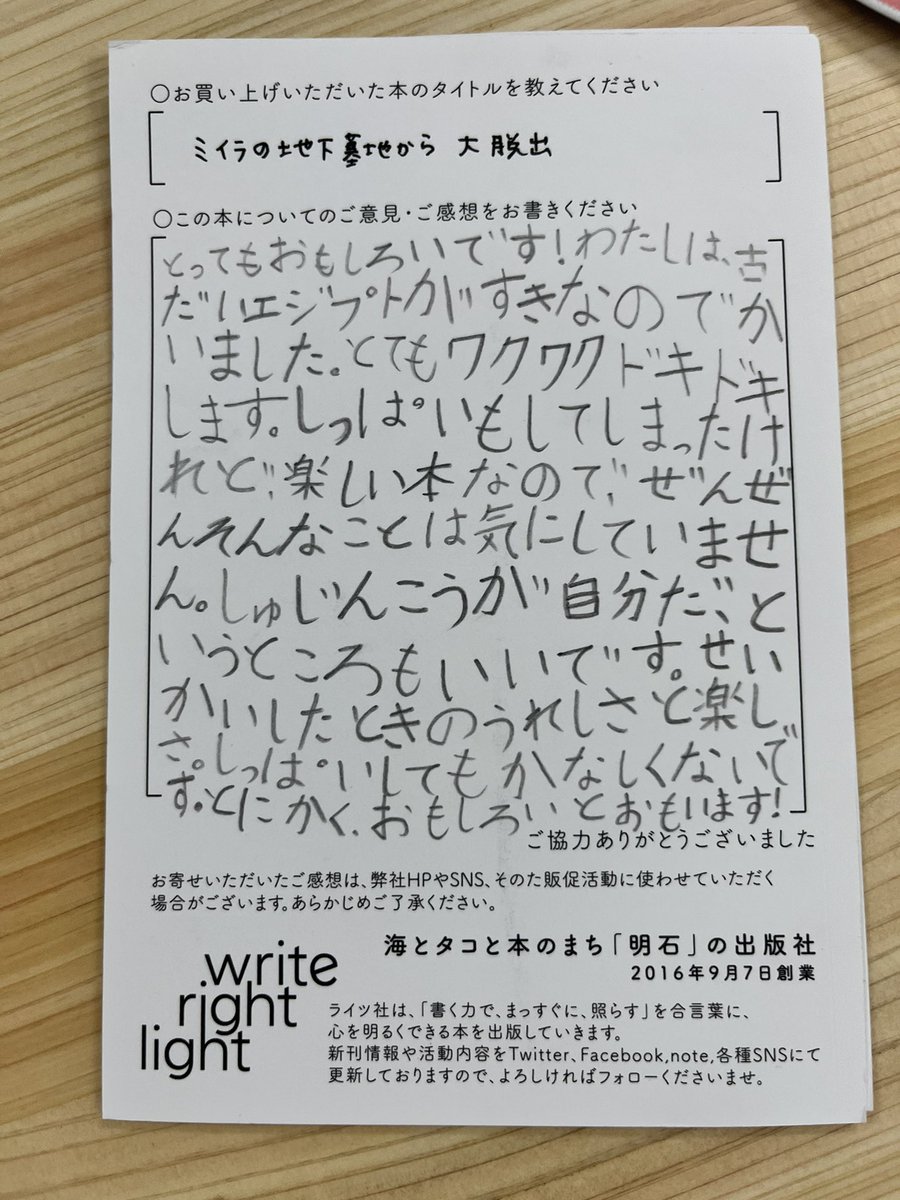 ○お買い上げいただいた本のタイトルを教えてください
ミイラの地下墓地から 大脱出
○この本についてのご意見・ご感想をお書きください
とってもおもしろいです！わたしは、古
だいエジプトがすきなのでか
いました。とてもワクワクドキドキ
します。しっぱいもしてしまったけ
れど、楽しい本なので、ぜんぜ
んそんなことは気にしていませ
ん。しゅじんこうが自分だ、と
いうところもいいです。せい
かいしたときのうれしさと楽し
さ。しっぱいしてもかなしくないで
す。とにかく、おもしろいとおもいます！
ご協力ありがとうございました
お寄せいただいたご感想は、弊社HPやSNS、そのた販促活動に使わせていただく
場合がございます。あらかじめご了承ください。
write
right
light
海とタコと本のまち「明石」の出版社
2016年9月7日創業
ライツ社は、「書く力で、まっすぐに、照らす」を合言葉に、
心を明るくできる本を出版していきます。
新刊情報や活動内容をTwitter、Facebook,note,各種SNSにて
更新しておりますので、よろしければフォローくださいませ。